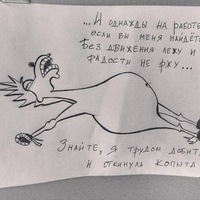 ...И ОДНАЖДЫ НА РАБОТЕ
ЕСЛИ ВЫ МЕНЯ НАЙДЁТЕ
БЕЗ ДВИЖЕНИЯ ЛЕЖУ И
РАДОСТИ НЕ РЖУ...
ЗНАЙТЕ, Я ТРУДОМ ДОБИТА
И ОТКИНУЛА КОПЫТА